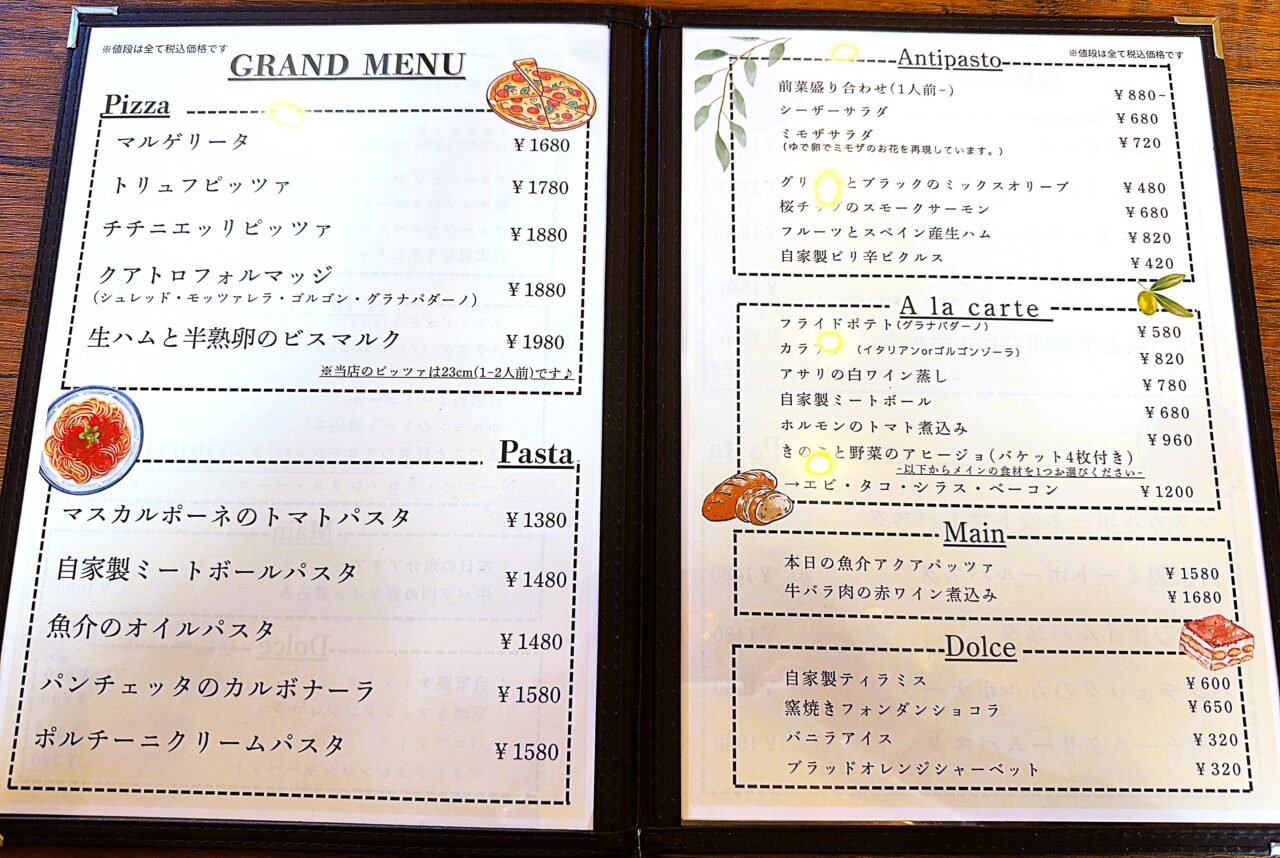 ※値段は全て税込価格です
GRAND MENU
Pizza
マルゲリータ ¥1680
トリュフピッツァ ¥1780
チチニエッリピッツァ ¥1880
クアトロフォルマッジ
(シュレッド・モッツァレラ・ゴルゴン・グラナパダーノ) ¥1880
生ハムと半熟卵のビスマルク ¥1980
※当店のピッツァは23cm(1-2人前)です♪
Pasta
マスカルポーネのトマトパスタ ¥1380
自家製ミートボールパスタ ¥1480
魚介のオイルパスタ ¥1480
パンチェッタのカルボナーラ ¥1580
ポルチーニクリームパスタ ¥1580
Antipasto
※値段は全て税込価格です
前菜盛り合わせ(1人前~) ¥880~
シーザーサラダ ¥680
ミモザサラダ ¥720
(ゆで卵でミモザのお花を再現しています。)
グリ とブラックのミックスオリーブ ¥480
桜チップのスモークサーモン ¥680
フルーツとスペイン産生ハム ¥820
自家製ピリ辛ピクルス ¥420
A la carte
フライドポテト(グラナパダーノ) ¥580
カラ (イタリアンorゴルゴンゾーラ) ¥820
アサリの白ワイン蒸し ¥780
自家製ミートボール ¥680
ホルモンのトマト煮込み ¥960
きのこと野菜のアヒージョ(バケット4枚付き)
-以下からメインの食材を1つお選びください-
→エビ・タコ・シラス・ベーコン ¥1200
Main
本日の魚介アクアパッツァ ¥1580
牛バラ肉の赤ワイン煮込み ¥1680
Dolce
自家製ティラミス ¥600
窯焼きフォンダンショコラ ¥650
バニラアイス ¥320
ブラッドオレンジシャーベット ¥320